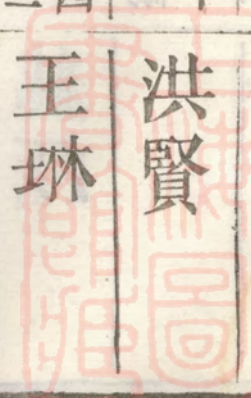 洪賢
王琳